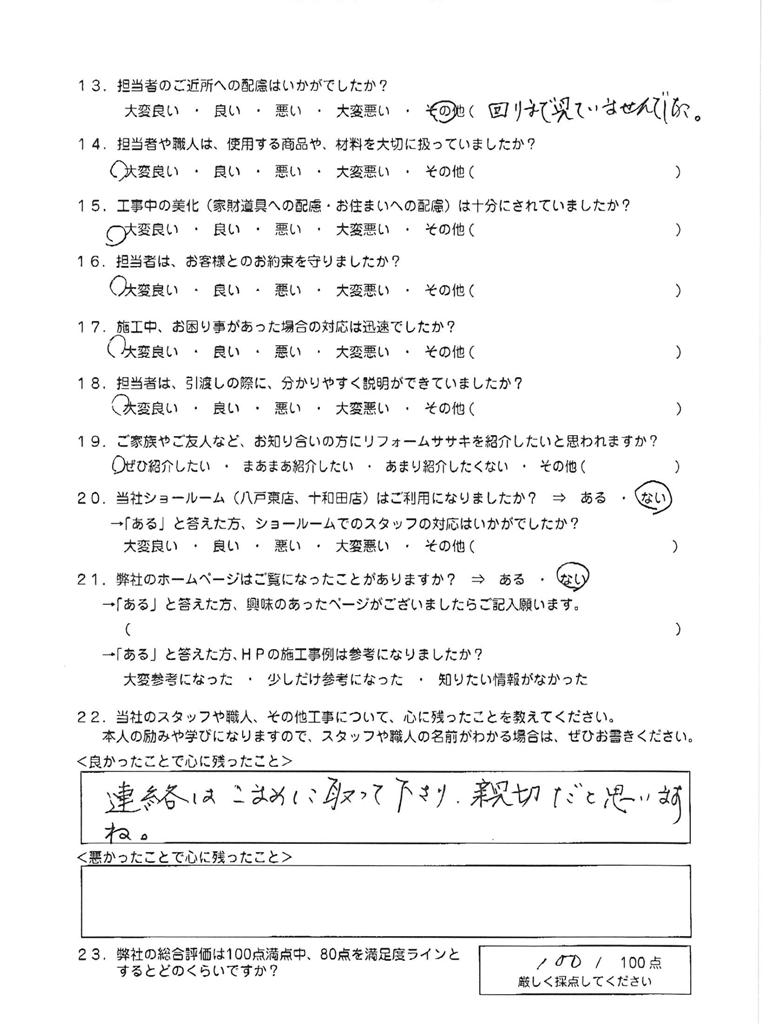 13．担当者のご近所への配慮はいかがでしたか？
大変良い ・ 良い ・ 悪い ・ 大変悪い ・ その他( 回りまで見ていませんでした。
14．担当者や職人は、使用する商品や、材料を大切に扱っていましたか？
大変良い ・ 良い ・ 悪い ・ 大変悪い ・ その他( )
15．工事中の美化（家財道具への配慮・お住まいへの配慮）は十分にされていましたか？
大変良い ・ 良い ・ 悪い ・ 大変悪い ・ その他( )
16．担当者は、お客様とのお約束を守りましたか？
大変良い ・ 良い ・ 悪い ・ 大変悪い ・ その他( )
17．施工中、お困り事があった場合の対応は迅速でしたか？
大変良い ・ 良い ・ 悪い ・ 大変悪い ・ その他( )
18．担当者は、引渡しの際に、分かりやすく説明ができていましたか？
大変良い ・ 良い ・ 悪い ・ 大変悪い ・ その他( )
19．ご家族やご友人など、お知り合いの方にリフォームササキを紹介したいと思われますか？
ぜひ紹介したい ・ まあまあ紹介したい ・ あまり紹介したくない ・ その他( )
20．当社ショールーム（八戸東店、十和田店）はご利用になりましたか？ ⇒ ある ・ ない
→「ある」と答えた方、ショールームでのスタッフの対応はいかがでしたか？
大変良い ・ 良い ・ 悪い ・ 大変悪い ・ その他( )
21．弊社のホームページはご覧になったことがありますか？ ⇒ ある ・ ない
→「ある」と答えた方、興味のあったページがございましたらご記入願います。
( )
→「ある」と答えた方、HPの施工事例は参考になりましたか？
大変参考になった ・ 少しだけ参考になった ・ 知りたい情報がなかった
22．当社のスタッフや職人、その他工事について、心に残ったことを教えてください。
本人の励みや学びになりますので、スタッフや職人の名前がわかる場合は、ぜひお書きください。
<良かったことで心に残ったこと>
連絡はこまめに取って下さり、親切だと思います
ね。
<悪かったことで心に残ったこと>
23．弊社の総合評価は100点満点中、80点を満足度ラインと
するとどのくらいですか？
100 / 100点
厳しく採点してください